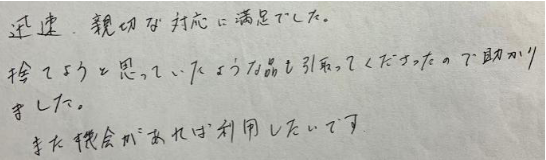 迅速、親切な対応に満足でした。
捨てようと思っていたような品も引取ってくださったので助かり
ました。
また機会があれば利用したいです